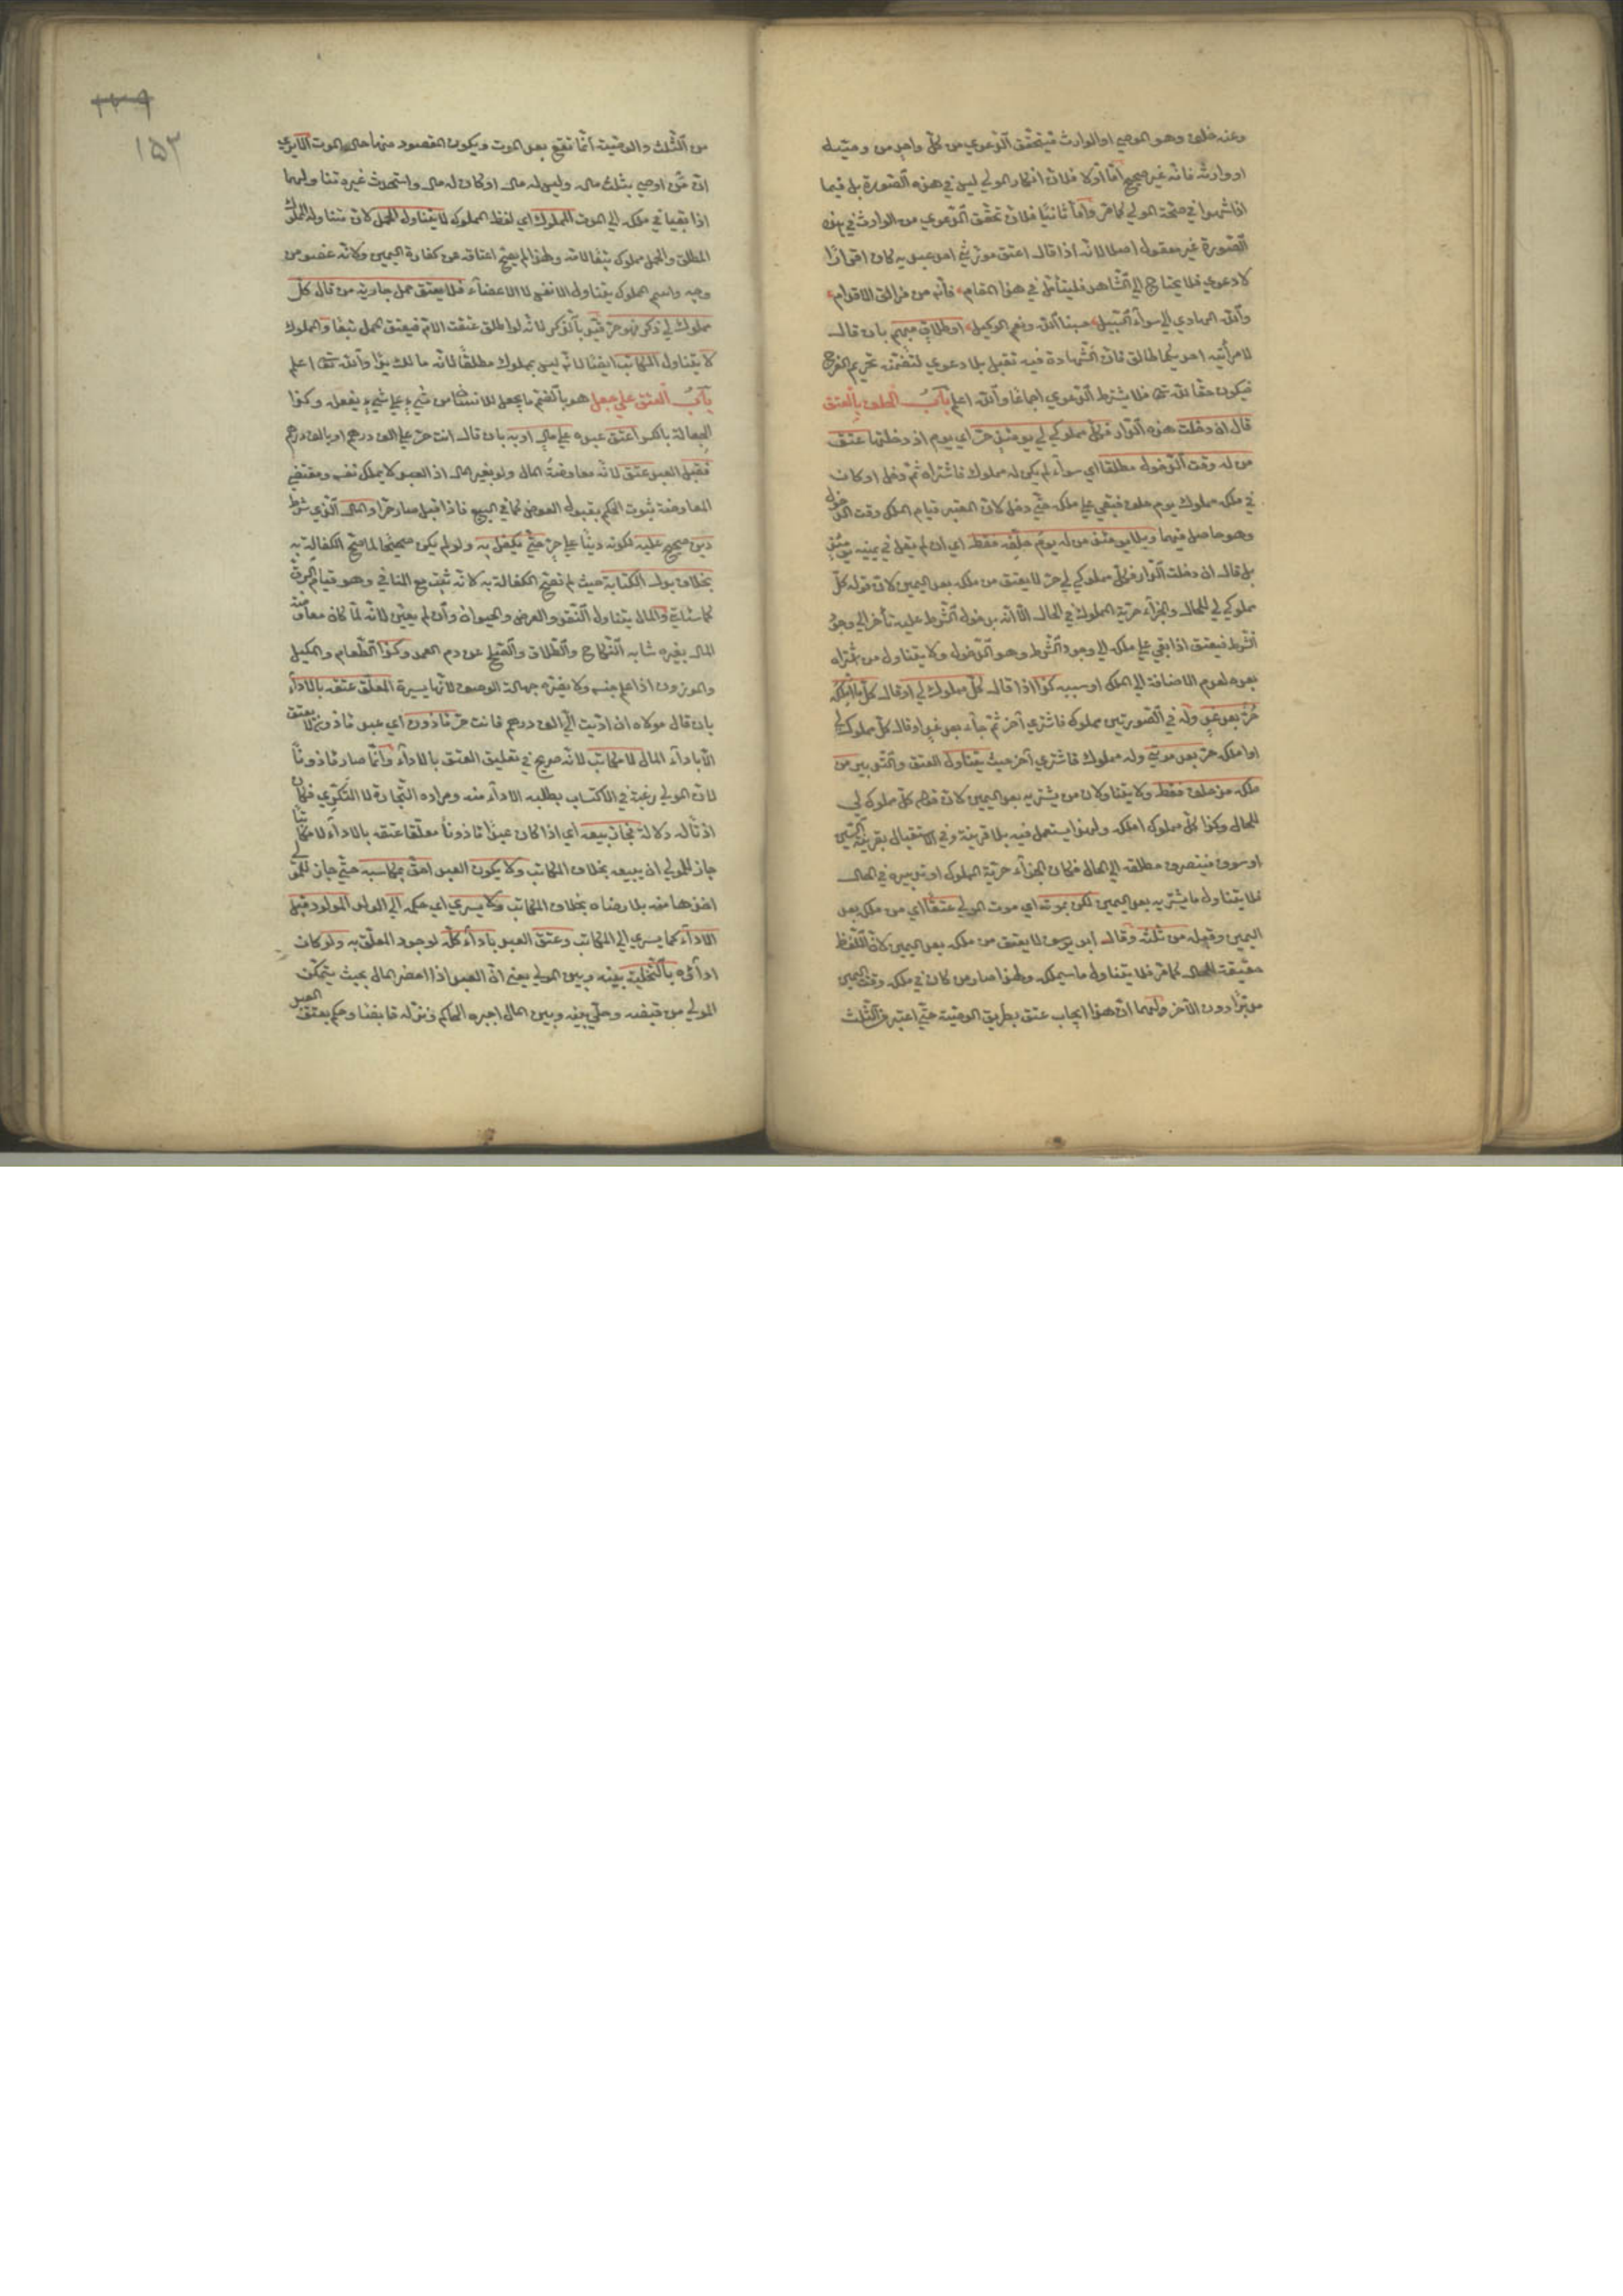 وعنه خلف وهو الموصي او الوارث فيتحقق الدعوي من كل واحد من وصيه
او وارثه فانه غير صحيح اما اولا فلان انكار المولي ليس في هذه الصورة بل فيما
اذا شهدوا في صحة المولي كما مر واما ثانيا فلان تحقق الدعوي من الوارث في هذه
الصورة غير معقول اصلا لانه اذا قال اعتق مورثي احد عبديه كان اقرارا
لا دعوي فلا يحتاج الي الشاهد فليتأمل في هذا المقام فانه من مزالق الاقوام
والله الهادي الي سواء السبيل حسبنا الله ونعم الوكيل او طلاق مبهم بان قال
لامرأتيه احديكما طالق فان الشهادة فيه تقبل بلا دعوي لتضمنه تحريم الفرج
فيكون حقا لله تع فلا يشترط الدعوي اجماعا والله اعلم باب الحلف بالعتق
قال ان دخلت هذه الدار فكل مملوك لي يومئذ حر اي يوم اذ دخلتها عتق
من له وقت الدخول مطلقا اي سواء لم يكن له مملوك فاشتراه ثم دخل او كان
في ملكه مملوك يوم حلف فبقي علي ملكه حتي دخل لان المعتبر قيام الملك وقت الدخول
وهو حاصل فيهما وبلا يومئذ من له يوم حلفه فقط اي ان لم يقل في يمينه يومئذ
بل قال ان دخلت الدار فكل مملوك لي حر لا يعتق من ملكه بعد اليمين لان قوله كل
مملوك لي للحال والجزاء حرية المملوك في الحال الا انه بدخول الشرط عليه تأخر الي وجود
الشرط فيعتق اذا بقي علي ملكه الي وجود الشرط وهو الدخول ولا يتناول من اشتراه
بعده لعدم الاضافة الي الملك او سببه كذا اذا قال كل مملوك لي او قال كل ما املكه
حر بعد غد وله في الصورتين مملوك فاشتري آخر ثم جاء بعد غد او قال كل مملوك لي
او املكه حر بعد موتي وله مملوك فاشتري آخر حيث يتناول العتق والتدبير من
ملكه مذ حلف فقط ولا يتناولان من يشتريه بعد اليمين لان قولهم كل مملوك لي
للحال وكذا كل مملوك املكه ولهذا يستعمل فيه بلا قرينة وفي الاستقبال بقرينة السين
او سوف فينصرف مطلقه الي الحال فكان الجزاء حرية المملوك او تدبيره في الحال
فلا يتناول ما يشتريه بعد اليمين لكن بموته اي موت المولي عتقا اي من ملك بعد
اليمين وقبله من ثلثه وقال ابو يوسف لا يعتق من ملكه بعد اليمين لان اللفظ
حقيقة للحال كما مر فلا يتناول ما سيملكه ولهذا صار من كان في ملكه وقت اليمين
مدبرا دون الآخر ولهما ان هذا ايجاب عتق بطريق الوصية حتي اعتبر من الثلث
١٥٢
من الثلث والوصية انما تقع بعد الموت ويكون المقصود منها حال الموت الا يري
ان من اوصي بثلث ماله وليس له مال او كان له مال واستحدث غيره تناولهما
اذا بقيا في ملكه الي الموت المملوك اي لفظ المملوك لا يتناول الحمل لان تناوله المملوك
المطلق والحمل مملوك تبعا لامه ولهذا لم يصح اعتاقه عن كفارة اليمين ولانه عضو من
وجه واسم المملوك يتناول الانفس لا الاعضاء فلا يعتق حمل جارية من قال كل
مملوك لي ذكر فهو حر قيد بالذكر لانه لو اطلق عتقت الام فيعتق الحمل تبعا والمملوك
لا يتناول المكاتب ايضا لانه ليس بمملوك مطلقا لانه مالك يدا والله تع اعلم
باب العتق علي جعل هو بالضم ما يجعل للانسان من شيء علي شيء يفعله وكذا
الجعالة بالكسر اعتق عبده علي مال او به بان قال انت حر علي الف درهم او بالف درهم
فقبل العبد عتق لانه معاوضة المال ولو بغير المال اذ العبد لا يملك نفسه ومقتضي
المعاوضة ثبوت الحكم بقبول العوض كما في البيع فاذا قبل صار حرا والمال الذي شرط
دين صحيح عليه لكونه دينا علي حر حتي تكفل به ولو لم يكن صحيحا لما صح الكفالة به
بخلاف بدل الكتابة حيث لم تصح الكفالة به لانه ثبت مع المنافي وهو قيام الرق
كما سيأتي والمال يتناول النقد والعرض والحيوان وان لم يعين لانه لما كان معاوضة
المال بغيره شابه النكاح والطلاق والصلح عن دم العمد وكذا الطعام والمكيل
والموزون اذا علم جنسه ولا يضره جهالة الوصف لانها يسيرة المعلق عتقه بالاداء
بان قال مولاه ان اديت الي الف درهم فانت حر مأذون اي عبد مأذون لا يعتق
الا باداء المال لا مكاتب لانه صريح في تعليق العتق بالاداء وانما صار مأذونا
لان المولي رغبه في الاكتساب بطلبه الاداء منه ومراده التجارة لا التكدي فكان
اذنا له دلالة فجاز بيعه اي اذا كان عبدا مأذونا معلقا عتقه بالاداء لا مكاتبا
جاز للمولي ان يبيعه بخلاف المكاتب ولا يكون العبد احق بمكاسبه حتي جاز للمولي
اخذها منه بلا رضاه بخلاف المكاتب ولا يسري اي حكمه الي الولد المولود قبل
الاداء كما يسري الي المكاتب وعتق العبد باداء كله لوجود المعلق به ولو كان
اداؤه بالتخلية بينه وبين المولي يعني ان العبد اذا احضر المال بحيث يتمكن
المولي من قبضه وخلي بينه وبين المال اجبره الحاكم ونزله قابضا وحكم بعتق العبد